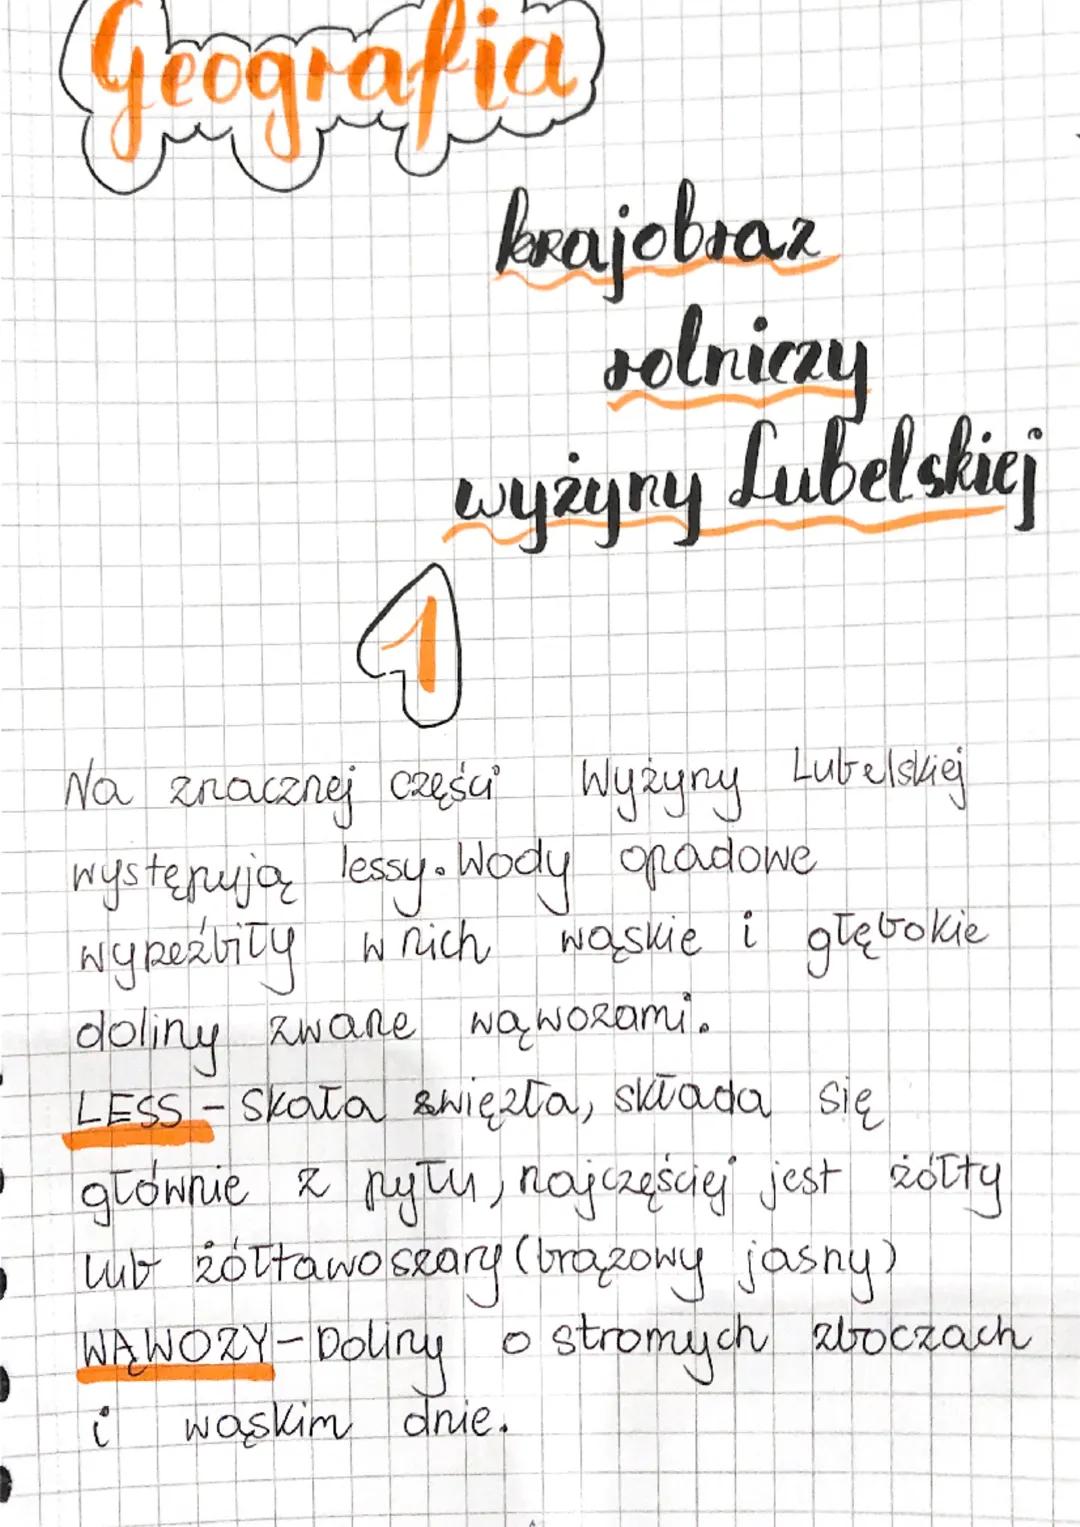 Geografia
krajobraz
rolniczy
wyżyny Lubelskiej
1
Na znacznej części Wyżyny Lubelskiej
występują lessy. Wody opadowe
wyrzeźbiły w nich wąskie i głębokie
doliny zwane wąwozami.
LESS - Skała zwięzła, składa się
głównie z pyłu, najczęściej jest żółty
lub żółtawoszary (brązowy jasny)
WĄWOZY - Doliny o stromych zboczach
i wąskim dnie.